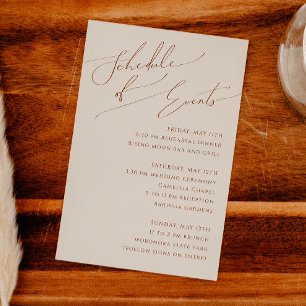 Schedule
of
Events
FRIDAY, MAY 11TH
6:30 PM REHEARSAL DINNER
RISING MOON BAR AND GRILL
SATURDAY, MAY 12TH
3:30 PM WEDDING CEREMONY
CAMELLIA CHAPEL
RECEPTION
GARDENS
SUNDAY, MAY 13TH
11 TO 2 PM BRUNCH
STATE PARK
(FOLLOW SIGNS ON ENTRY)